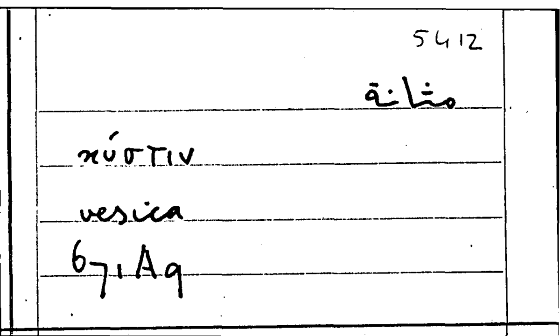 5412
مثانة
κύστιν
vesica
671A9